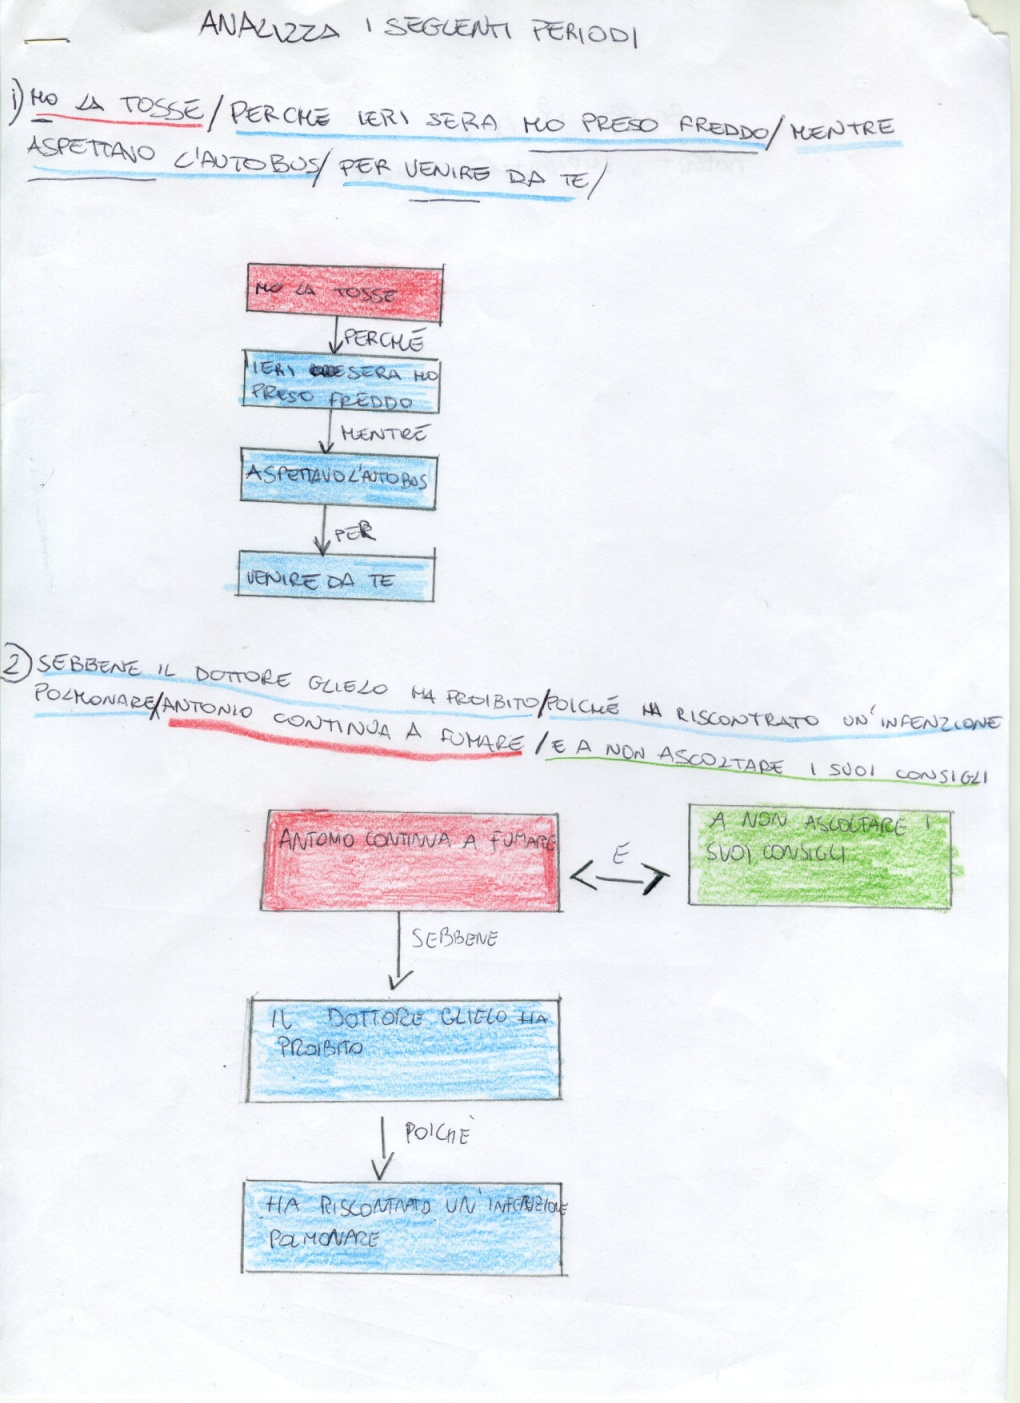 ANALIZZA I SEGUENTI PERIODI
1) HO LA TOSSE/PERCHÉ IERI SERA HO PRESO FREDDO/MENTRE
ASPETTAVO L'AUTOBUS/PER VENIRE DA TE/
HO LA TOSSE
PERCHÉ
IERI SERA HO
PRESO FREDDO
MENTRE
ASPETTAVO L'AUTOBUS
PER
VENIRE DA TE
2) SEBBENE IL DOTTORE GLIELO HA PROIBITO/POICHÉ HA RISCONTRATO UN'INFENZIONE
POLMONARE/ANTONIO CONTINUA A FUMARE/E A NON ASCOLTARE I SUOI CONSIGLI
ANTONIO CONTINUA A FUMARE
E
A NON ASCOLTARE I
SUOI CONSIGLI
SEBBENE
IL DOTTORE GLIELO HA
PROIBITO
POICHÈ
HA RISCONTRATO UN'INFENZIONE
POLMONARE